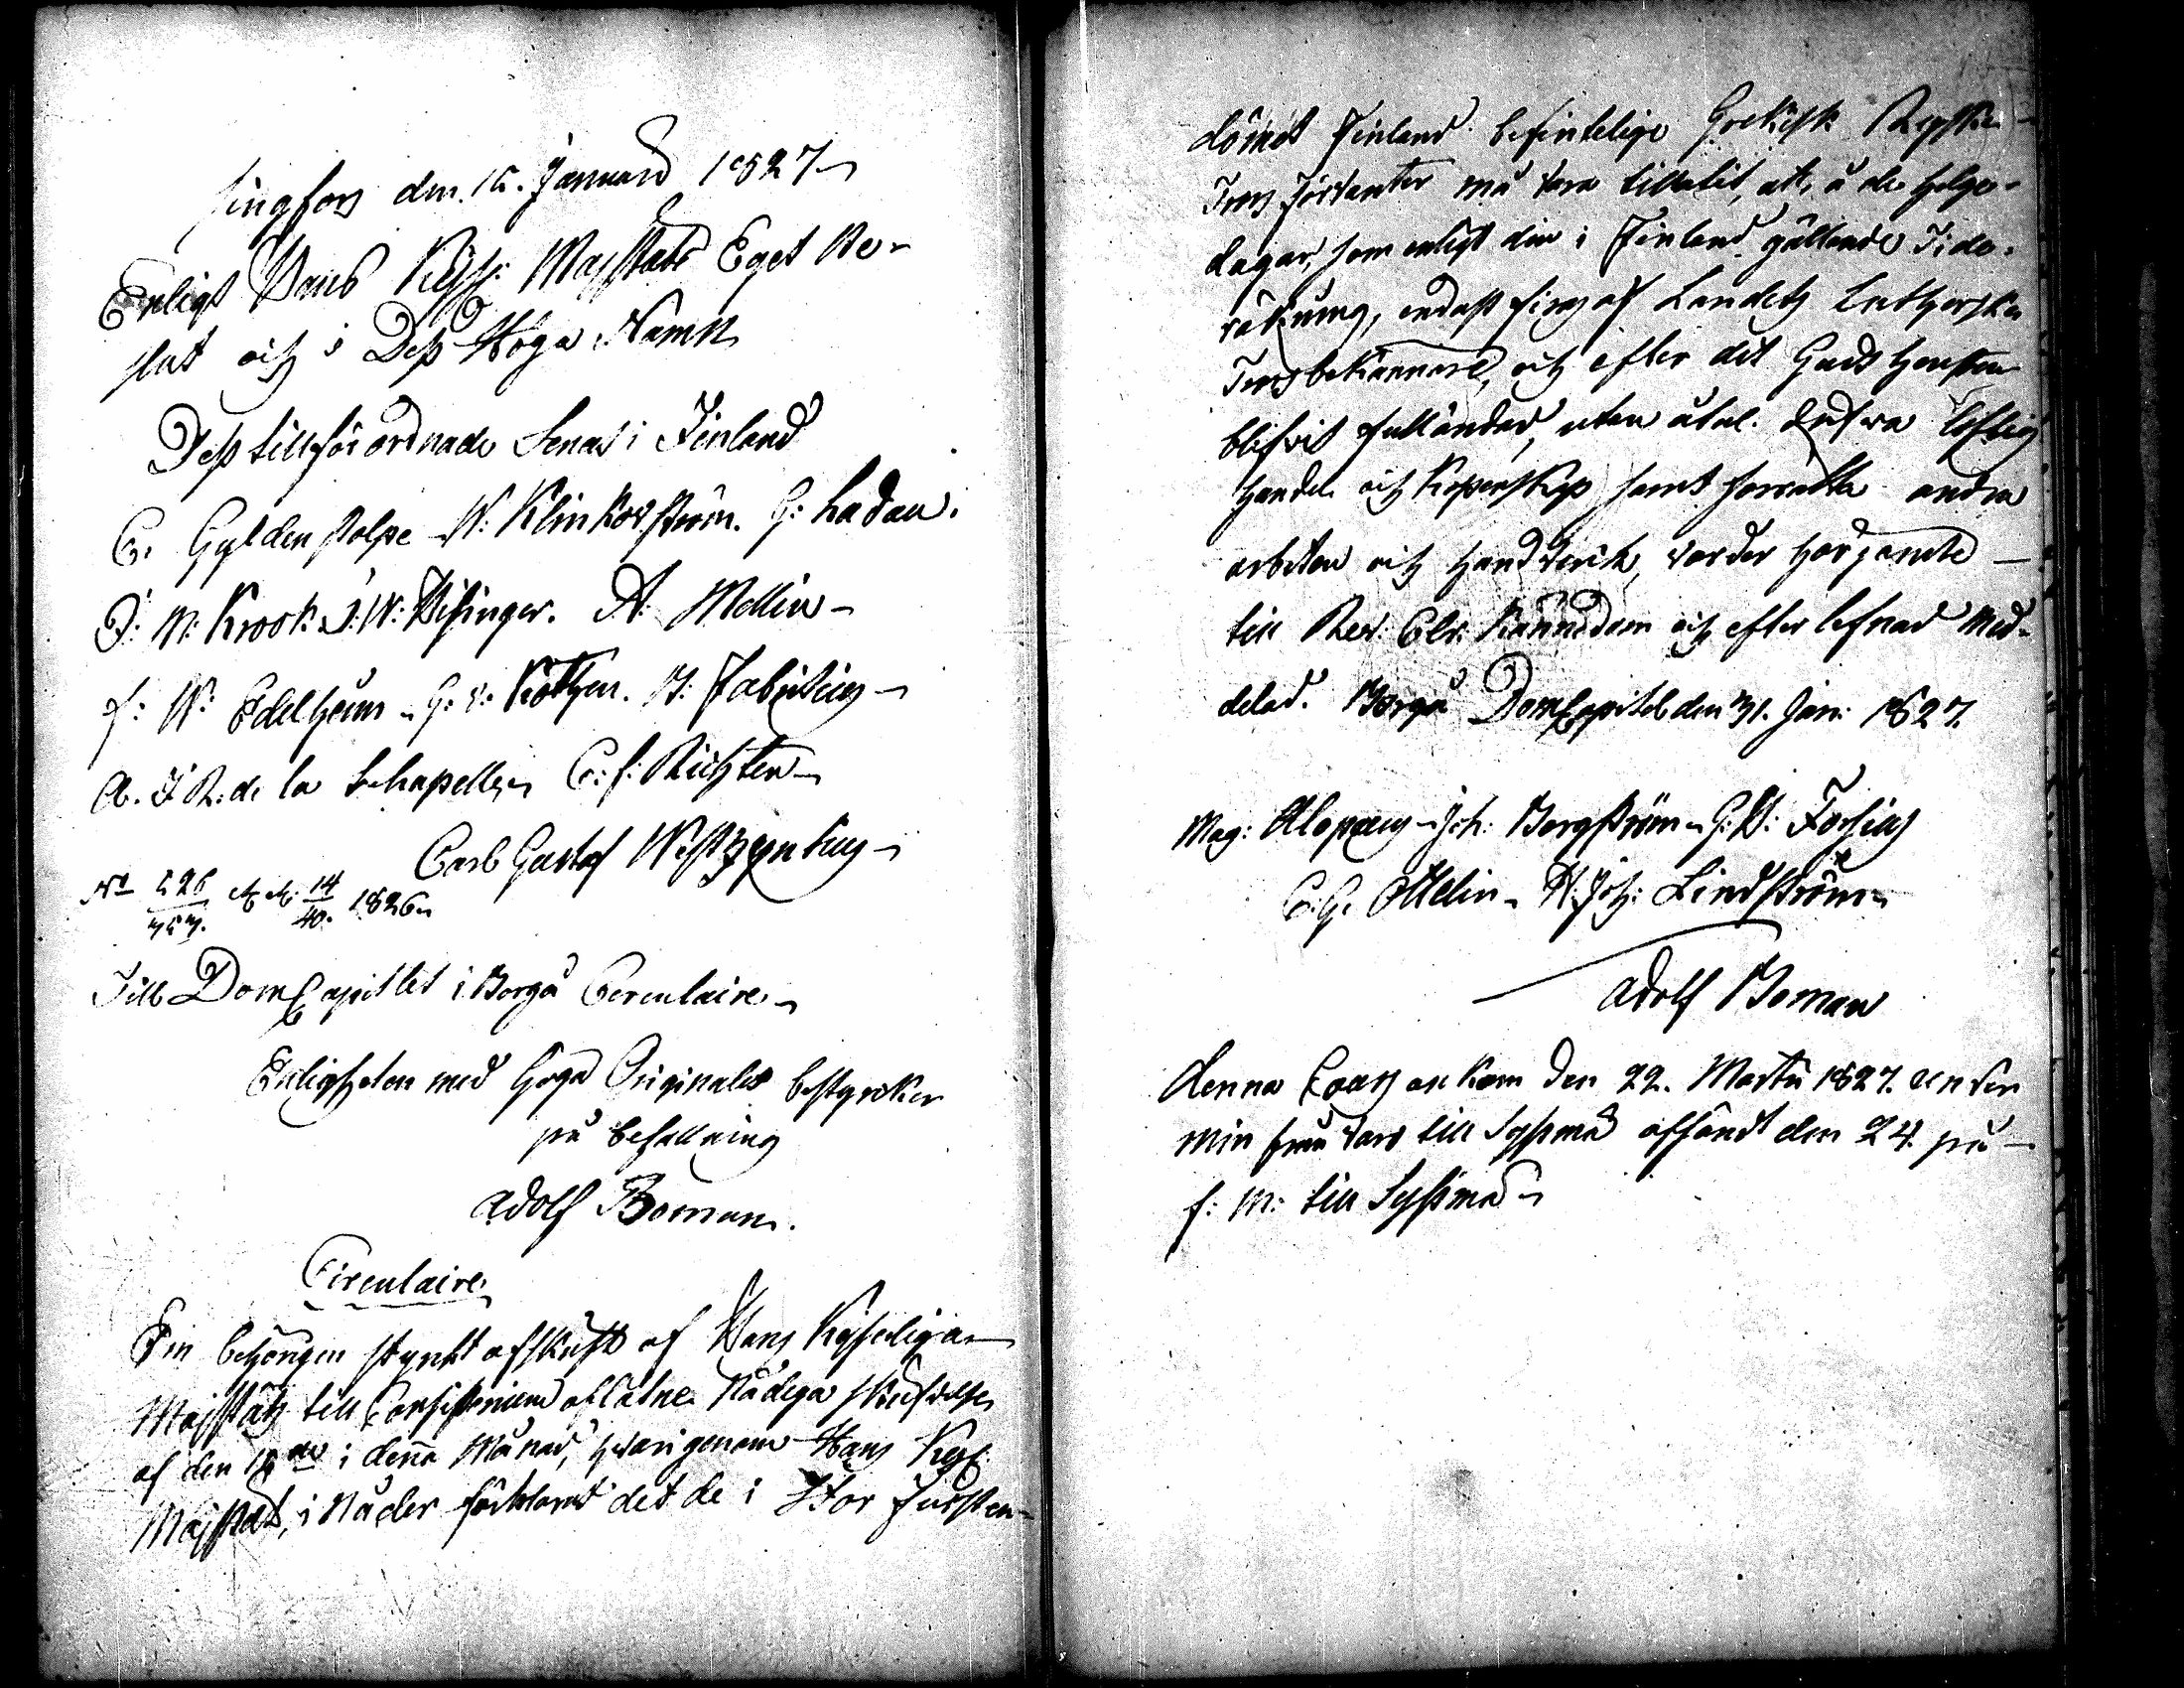 singfors den 15. Januarii 1827
Enligt Hans Kejs: Majestäts Eget Be-
slut och i Dess Höga Namn
Dess tillförordnade Senat i Finland
C. Gyldenstolpe W: Klinkowström. G: Ladau.
J: M: Krook. J: W: Hisinger. A: Mellin
f: W: Edelheim G: v: Kothen. B: Fabritius
A. F R: de la Chapelle C: f: Richter
Carl Gustaf Westzynthius
No 526/757. 14/40. 1826
Till DomCapitlet i Borgå Circulaire
Enligheten med höga Originalet bestyrker
på befallning
Adolf Boman.
Circulaire
Em behörigen styrkt afskrift af Hans Kejserliga
Majestäts till Consistorium aflåtne Nådiga skrifvelse
af den 15de i denna Månad, hvarigenom Hans Kejs:
Majestät, i Nåder förklarat det de i Stor Fursten-
dömet Finland befintelige Grekisk Ryska
Tros förvanter må vara tillåtit, att, å de helge-
dagar, som enligt den i Finland gällande Tide-
räkning, endast firas af Landets Lutherska
Trosbekännare, och efter det Gudstjensten
blifvit fulländad, utan åtal. drifva loflig
handel och Köpenskap samt förrätta andra
arbeten och handtverk, varder härjemte
till Rev: Cler: kännedom och efterlefnad med-
delad. Borgå DomCapitel den 31. Jan: 1827.
Mag: Alopæus Joh: Borgström G: H: Forsius
C. G. Ottelin A: Joh: Lindström
Adolf Boman
denna Couv ankom den 22. Martii 1827. under
min från varo till Sysmä afsändt den 24. på
f: M: till Sysmä